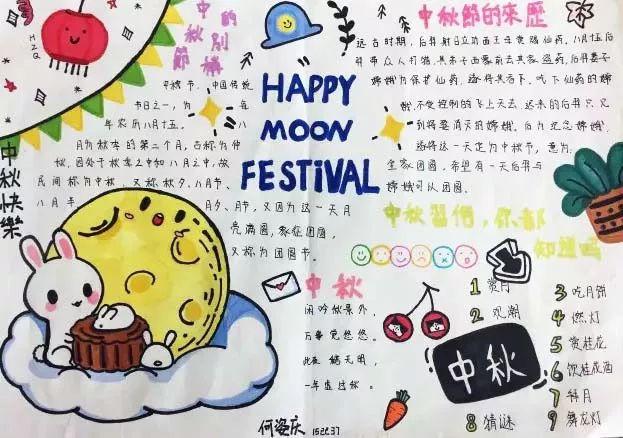 HZQ
中秋節
的別稱
中秋节,中国传统
节日之一,为每
年农历八月十五。八
月为秋季的第二个月,古称为仲
秋,因处于秋季之中和八月之中,故
民间称为中秋,又称秋夕、八月节、
八月半、月夕、月节,又因为这一天月
亮满圆,象征团圆,
又称为团圆节。
中秋快樂
HAPPY
MOON
FESTIVAL
中秋節的來歷
远古时期,后羿射日立功西王母赏赐仙药。八月十五后
羿带众人打猎,其弟子西蒙前去其家盗药,后羿妻子
嫦娥为保护仙药,遂将其吞下。吃下仙药的嫦
娥,不受控制的飞上天去,返来的后羿只见
到将要消失的嫦娥。后为纪念嫦娥,
遂将这一天定为中秋节,意为:
全家团圆,希望有一天后羿与
嫦娥可以团圆。
中秋習俗,你都
知道嗎
1 赏月
2 观潮
3 吃月饼
4 燃灯
5 赏桂花
6 饮桂花酒
7 拜月
8 猜谜
9 舞龙灯
中秋
中秋
闲吟秋景外,
万事觉悠悠。
此夜
一年虚过秋。
何姿庆 152237